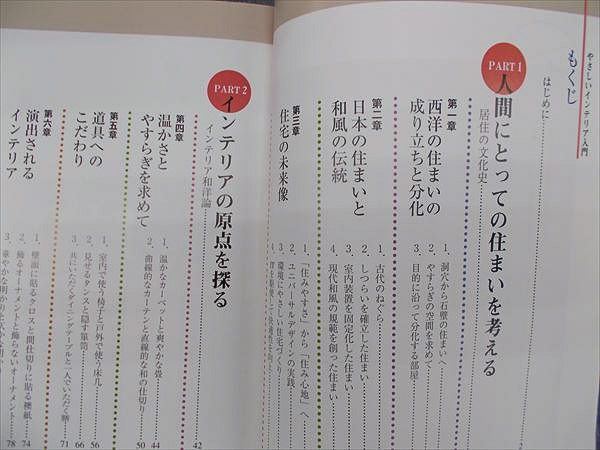 やさしいインテリア入門
もくじ
はじめに
PART 1
人間にとっての住まいを考える
居住の文化史
第一章
西洋の住まいの
成り立ちと分化
1、洞穴から石壁の住まいへ
2、やすらぎの空間を求めて
3、目的に沿って分化する部屋
第二章
日本の住まいと
和風の伝統
1、古代のねぐら
2、しつらいを確立した住まい
3、室内装置を固定化した住まい
4、現代和風の規範を創った住まい
第三章
住宅の未来像
1、「住みやすさ」から「住み心地」へ
2、ユニバーサルデザインの実践
3、環境にやさしい住宅づくり
4、
PART 2
インテリアの原点を探る
インテリア和洋論
42
第四章
温かさと
やすらぎを求めて
1、温かなカーペットと爽やかな畳
44
2、曲線的なカーテンと直線的な和の仕切り
50
第五章
道具への
こだわり
1、室内で使う椅子と戸外で使う床几
56
2、見せるタンスと隠す箪笥
66
3、共にいただくダイニングテーブルと一人でいただく膳
71
第六章
演出される
インテリア
1、壁面に貼るクロスと間仕切りに貼る襖紙
74
2、飾るオーナメントと飾らないオーナメント
78
3、華やかな